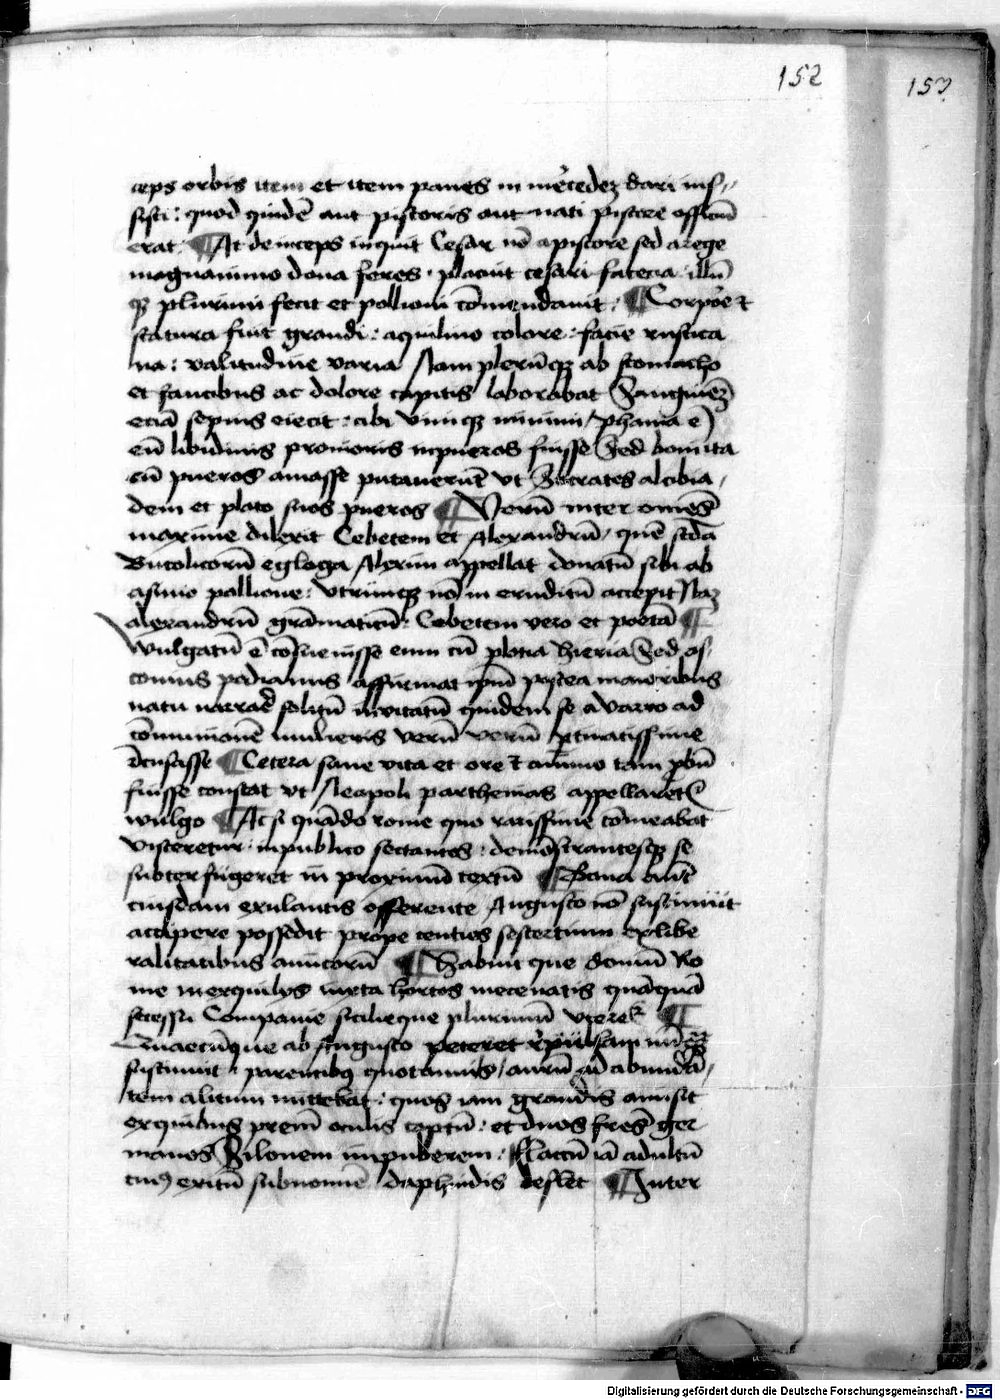 152
153
ceps orbis item et item panes in mẽcedeʒ dari ius⸗
sisti : quod quidẽ aut pistoris aut nati pistore officiũ
erat ¶ At deinceps inquit Cesar nõ a pistore sed a rege
magnanimo dona feres · placuit cesari facecia · illũ
qʒ plurimi fecit et pollioni cõmendauit · ¶ Corpõe ⁊
statura fuit grandi : aquilino colore : facie rustica
na : valitudine varia Nam plerũqʒ ab stomacho
et faucibus ac dolore capitis laborabat Sanguineʒ
eciã sepius eiecit · cibi viniqʒ minimi / phama ẽ
eũ libidinis pronioris in pueros fuisse Sed boni ita
eũ pueros amasse putauerũt vt Socrates alcibia⸗
dem et plato suos pueros ¶ Verũ inter omẽs
maxime dilexit Cebetem et Alexandrũ / quẽ secũda
Bucolicorũ egloga Alexim appellat donatũ sibi ab
asinio pollione : vtrũmqʒ nõ in eruditũ accepit Naʒ
alexandrũ grãmaticũ : Cebetem vero et poetã ¶
Wulgatũ ẽ cõsueuisse eum cũ plotia hieria Sed as⸗
conius pedianus affirmat ipam postea maioribus
natu narrare solitã inuitatũ quidem se a varro ad
cõmunionẽ mulieris verũ verũ ptinatissime
recusasse ¶ Cetera sane vita et ore ⁊ animo tam pbũ
fuisse constat vt Neapoli parthenias appellaretur
wulgo ¶ Ac si quãdo rome quo rarissime cõmeabat
visceretur · in publico sectantes : demõstrantesqʒ se
subterfugeret in proximũ tectũ ¶ Bona autẽ
cuiusdam exulantis offerente Augusto nõ sustinuit
accipere possedit prope centies sestertium ex libe
ralitatibus amicorũ ¶ Habuit que domũ Ro
me in exquiliis iuxta hortos mecenatis quãquã
secessu Companie sicilieque plurimũ vteretur ¶
Quaecũque ab Augusto peteret repulsam nũqʒ
sustinuit · parentibus quotannis / aurũ ad abundã⸗
tem alitum mittebat : quos iam grandis amisit
ex quibus prem̃ oculis captũ : et duos fres̃ ger
manos Silonem impuberem : Flaccũ iã adultũ
cuiꝰ exitũ sub nomine daphnidis deflet ¶ Inter
Digitalisierung gefördert durch die Deutsche Forschungsgemeinschaft - DFG